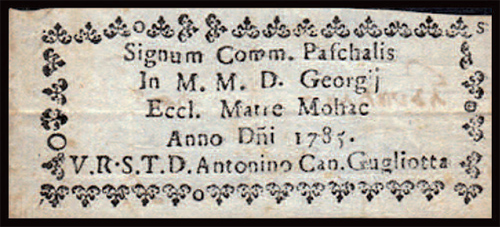 Signum Comm. Paſchalis
In M. M. D. Georgij
Eccl. Matre Mohac
Anno Dñi 1785.
V.R.S.T.D. Antonino Can.Gugliotta